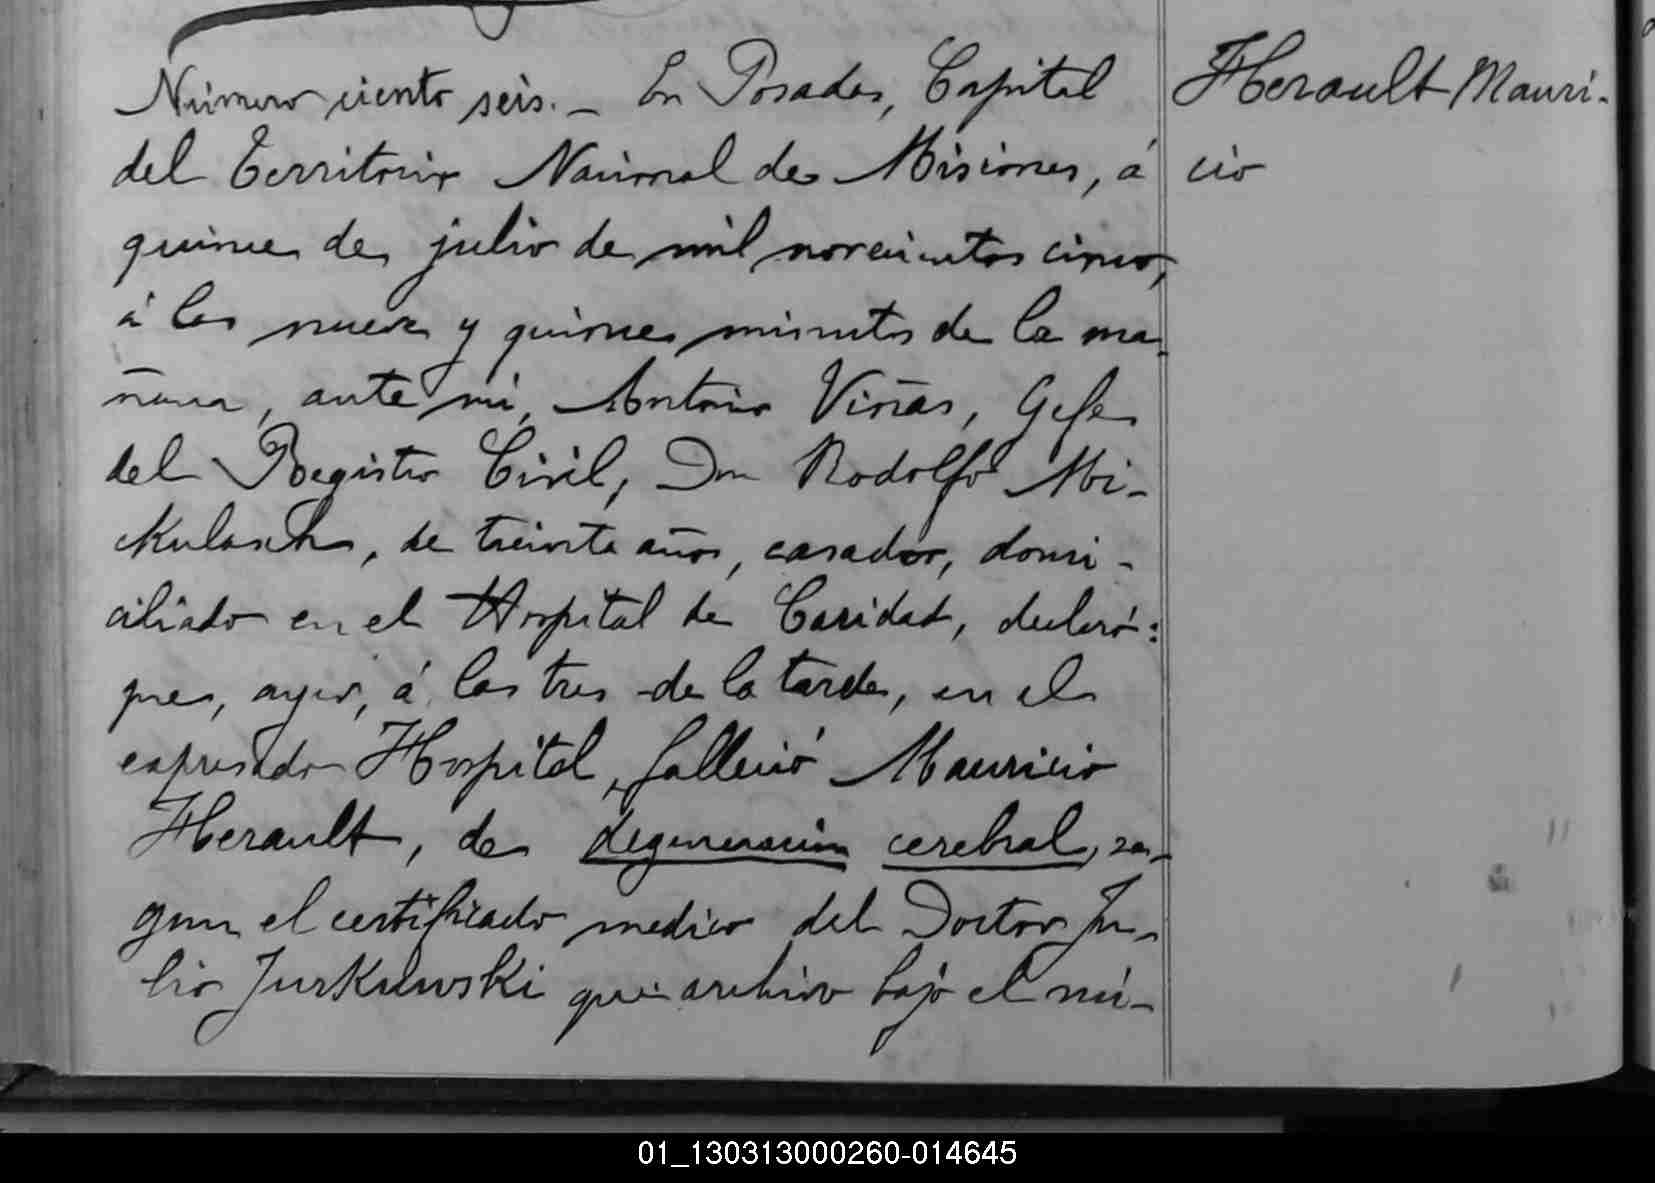 Número ciento seis. – En Posadas, Capital
del Territorio Nacional de Misiones, á
quince de julio de mil novecientos cinco,
á las nueve y quince minutos de la ma-
ñana, ante mi, Antonio Viñas, Gefe
del Registro Civil, Don Rodolfo Mi-
kulasch, de treinta años, casado, domi-
ciliado en el Hospital de Caridad, declaró:
que, ayer, á las tres de la tarde, en el
expresado Hospital, falleció Mauricio
Herault, de degeneración cerebral, se-
gun el certificado medico del Doctor Ju-
lio Jurkowski que archivo bajo el nú-
Herault Mauri-
cio
01_130313000260-014645